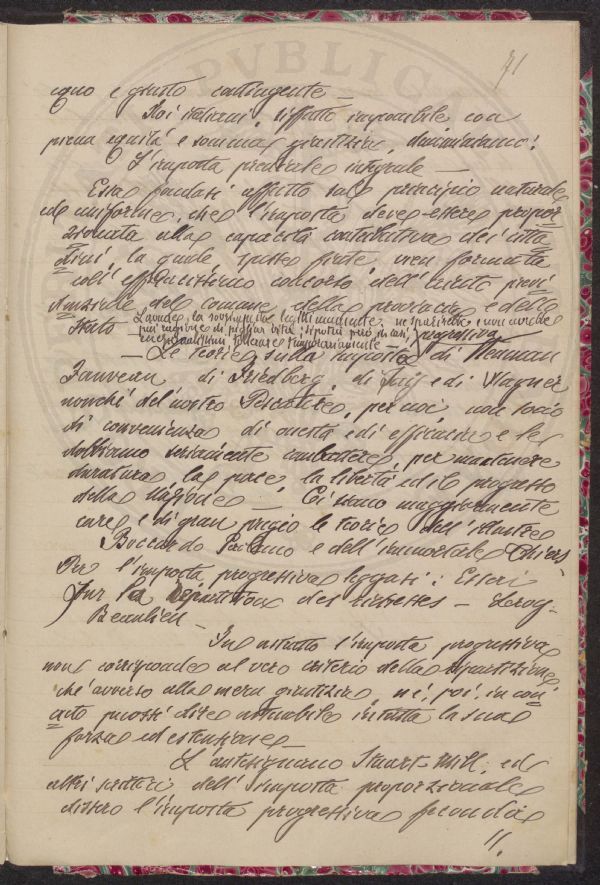 71
equo e giusto contingente —
Noi italiani, siffatto imponibile con
piena equità e somma giustizia, denominiamo:
L'imposta prediale integrale —
Essa fondasi affatto sul principio naturale
ed uniforme, che l'imposta deve essere propor-
zionata alla capacità contributiva dei citta
dini, la quale spesse fiate vien formata
coll'efficacissimo concorso dell'ente provi
denziale del comune, della provincia e dello
Stato
— Le teorie sulla imposta progressiva di Neuman
di Friedberg, di e di Wagner
nonchè del nostro Pescatore, per noi non sono
di convenienza di onestà ed i efficacia e le
dobbiamo seriamente combattere, per mantenere
duratura la pace, la libertà ed il progresso
della Nazione — Ci siano maggiormente
care e di gran pregio le teorie dell'illustre
Boccardo e dell'immortale Thiers
Per l'imposta progressiva leggasi: Essai
sur la répartition des richesses — Leroy-
Beaulieu —
In astratto l'imposta progressiva
non corrisponde al vero criterio della ripartizione
ché avverso alla mera giustizia, nè, poi, in con
creto puossi dire attuabile in tutta la sua
forza ed estensione —
L'antesignano Stuart-Mill, ed
altri scrittori dell'imposta proporzionale
dissero l'imposta progressiva feconda
11.